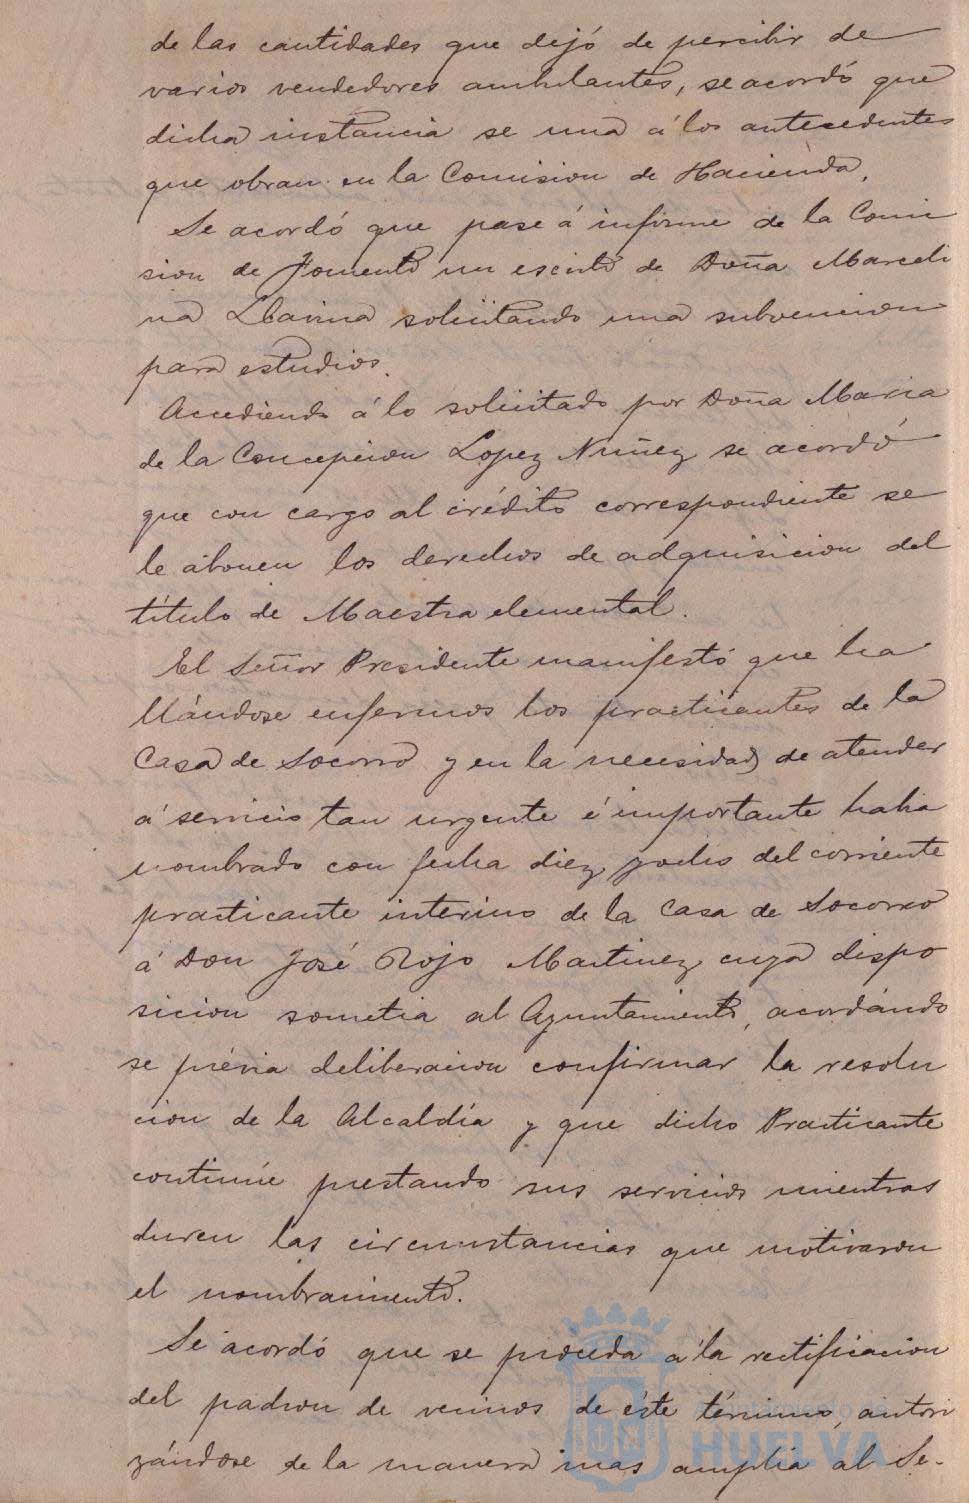 de las cantidades que dejó de percibir de
varios vendedores ambulantes, se acordó que
dicha instancia se una á los antecedentes
que obran en la Comision de Hacienda.
Se acordó que pase á informe de la Comi
sion de Fomento un escrito de Doña Marceli
na Llavina solicitando una subvencion
para estudios.
Accediendo á lo solicitado por Doña Maria
de la Concepcion Lopez Nuñez se acordó
que con cargo al crédito correspondiente se
le abonen los derechos de adquisicion del
título de Maestra elemental.
El Señor Presidente manifestó que ha
llándose enfermos los practicantes de la
Casa de Socorro y en la necesidad de atender
á servicio tan urgente é importante habia
nombrado con fecha diez y ocho del corriente
practicante interino de la Casa de Socorro
á Don José Rojo Martinez cuya dispo
sicion sometia al Ayuntamiento, acordándo
se prévia deliberacion confirmar la resolu
cion de la Alcaldía y que dicho Practicante
continúe prestando sus servicios mientras
duren las circunstancias que motivaron
el nombramiento.
Se acordó que se proceda á la rectificacion
del padron de vecinos de éste término, autori
zándose de la manera mas amplia al Se-
Ayuntamiento de
HUELVA